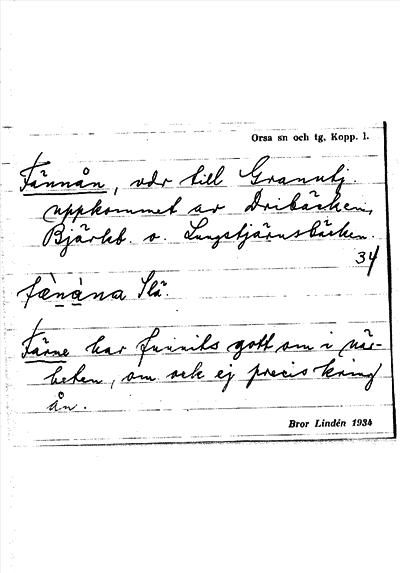 Orsa sn och tg, Kopp. l.
Fännån, vdr till Granutj.
uppkommet av Dribäcken,
Björkb. o. Lungtjärnsbäcken.
34
fæ̀nåna Slä.
Färne har funnits gott om i när-
heten, om ock ej precis kring
ån.
Bror Lindén 1934